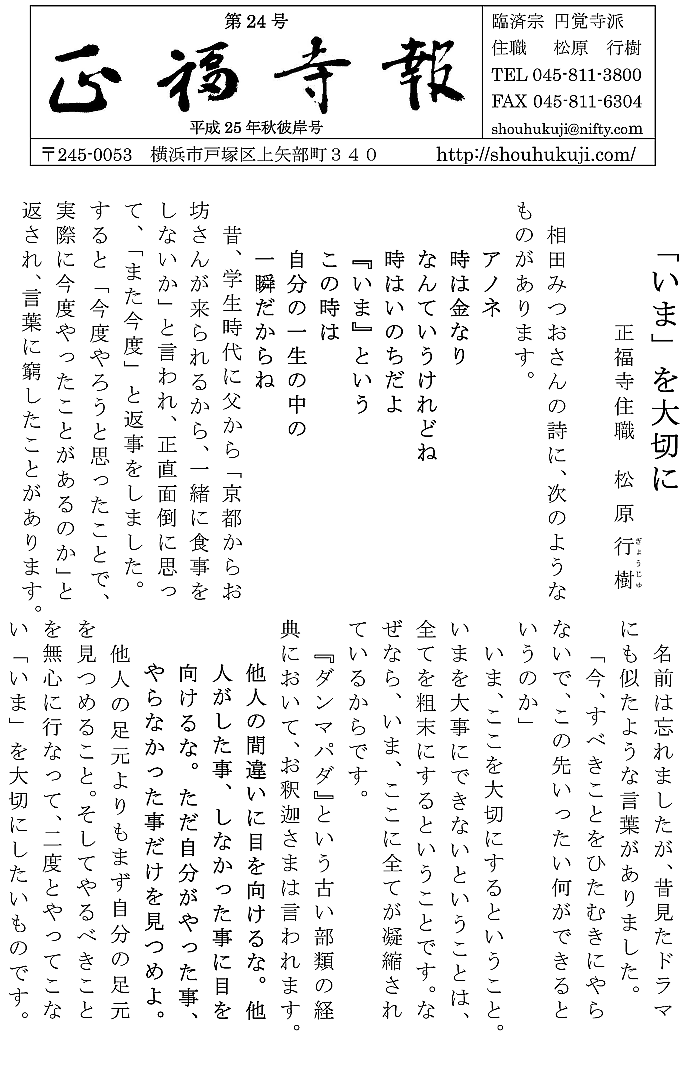 第24号
正福寺報
平成25年秋彼岸号
臨済宗 円覚寺派
住職 松原 行樹
TEL 045-811-3800
FAX 045-811-6304
shouhukuji@nifty.com
〒245-0053 横浜市戸塚区上矢部町340 http://shouhukuji.com/
「いま」を大切に
正福寺住職 松原 行樹
ぎょうじゅ
相田みつおさんの詩に、次のような
ものがあります。
アノネ
時は金なり
なんていうけれどね
時はいのちだよ
『いま』という
この時は
自分の一生の中の
一瞬だからね
昔、学生時代に父から「京都からお
坊さんが来られるから、一緒に食事を
しないか」と言われ、正直面倒に思っ
て、「また今度」と返事をしました。
すると「今度やろうと思ったことで、
実際に今度やったことがあるのか」と
返され、言葉に窮したことがあります。
名前は忘れましたが、昔見たドラマ
にも似たような言葉がありました。
「今、すべきことをひたむきにやら
ないで、この先いったい何ができると
いうのか」
いま、ここを大切にするということ。
いまを大事にできないということは、
全てを粗末にするということです。な
ぜなら、いま、ここに全てが凝縮され
ているからです。
『ダンマパダ』という古い部類の経
典において、お釈迦さまは言われます。
他人の間違いに目を向けるな。他
人がした事、しなかった事に目を
向けるな。ただ自分がやった事、
やらなかった事だけを見つめよ。
他人の足元よりもまず自分の足元
を見つめること。そしてやるべきこと
を無心に行なって、二度とやってこな
い「いま」を大切にしたいものです。